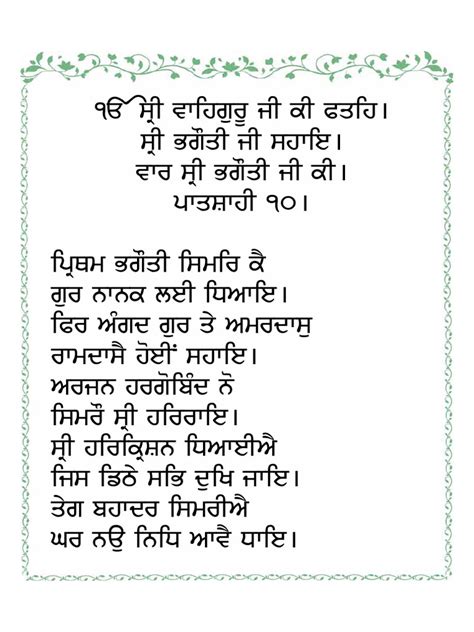 ੴ ਸ੍ਰੀ ਵਾਹਿਗੁਰੂ ਜੀ ਕੀ ਫਤਹਿ।
ਸ੍ਰੀ ਭਗੌਤੀ ਜੀ ਸਹਾਇ।
ਵਾਰ ਸ੍ਰੀ ਭਗੌਤੀ ਜੀ ਕੀ।
ਪਾਤਸ਼ਾਹੀ ੧੦।
ਪ੍ਰਿਥਮ ਭਗੌਤੀ ਸਿਮਰਿ ਕੈ
ਗੁਰ ਨਾਨਕ ਲਈ ਧਿਆਇ।
ਫਿਰ ਅੰਗਦ ਗੁਰ ਤੇ ਅਮਰਦਾਸੁ
ਰਾਮਦਾਸੈ ਹੋਈਂ ਸਹਾਇ।
ਅਰਜਨ ਹਰਗੋਬਿੰਦ ਨੋ
ਸਿਮਰੌ ਸ੍ਰੀ ਹਰਿਰਾਇ।
ਸ੍ਰੀ ਹਰਿਕ੍ਰਿਸ਼ਨ ਧਿਆਈਐ
ਜਿਸ ਡਿਠੇ ਸਭਿ ਦੁਖਿ ਜਾਇ।
ਤੇਗ ਬਹਾਦਰ ਸਿਮਰੀਐ
ਘਰ ਨਉ ਨਿਧਿ ਆਵੈ ਧਾਇ।